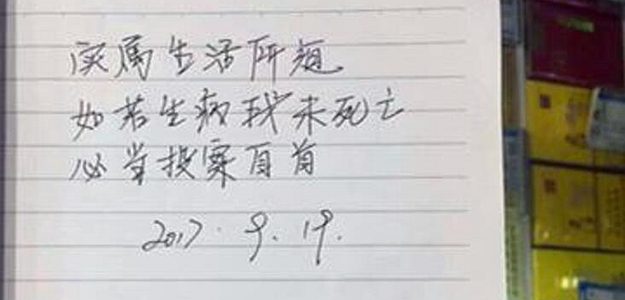 实属生活所逼
如若生病我未死亡
必当投案自首
2017.9.19.